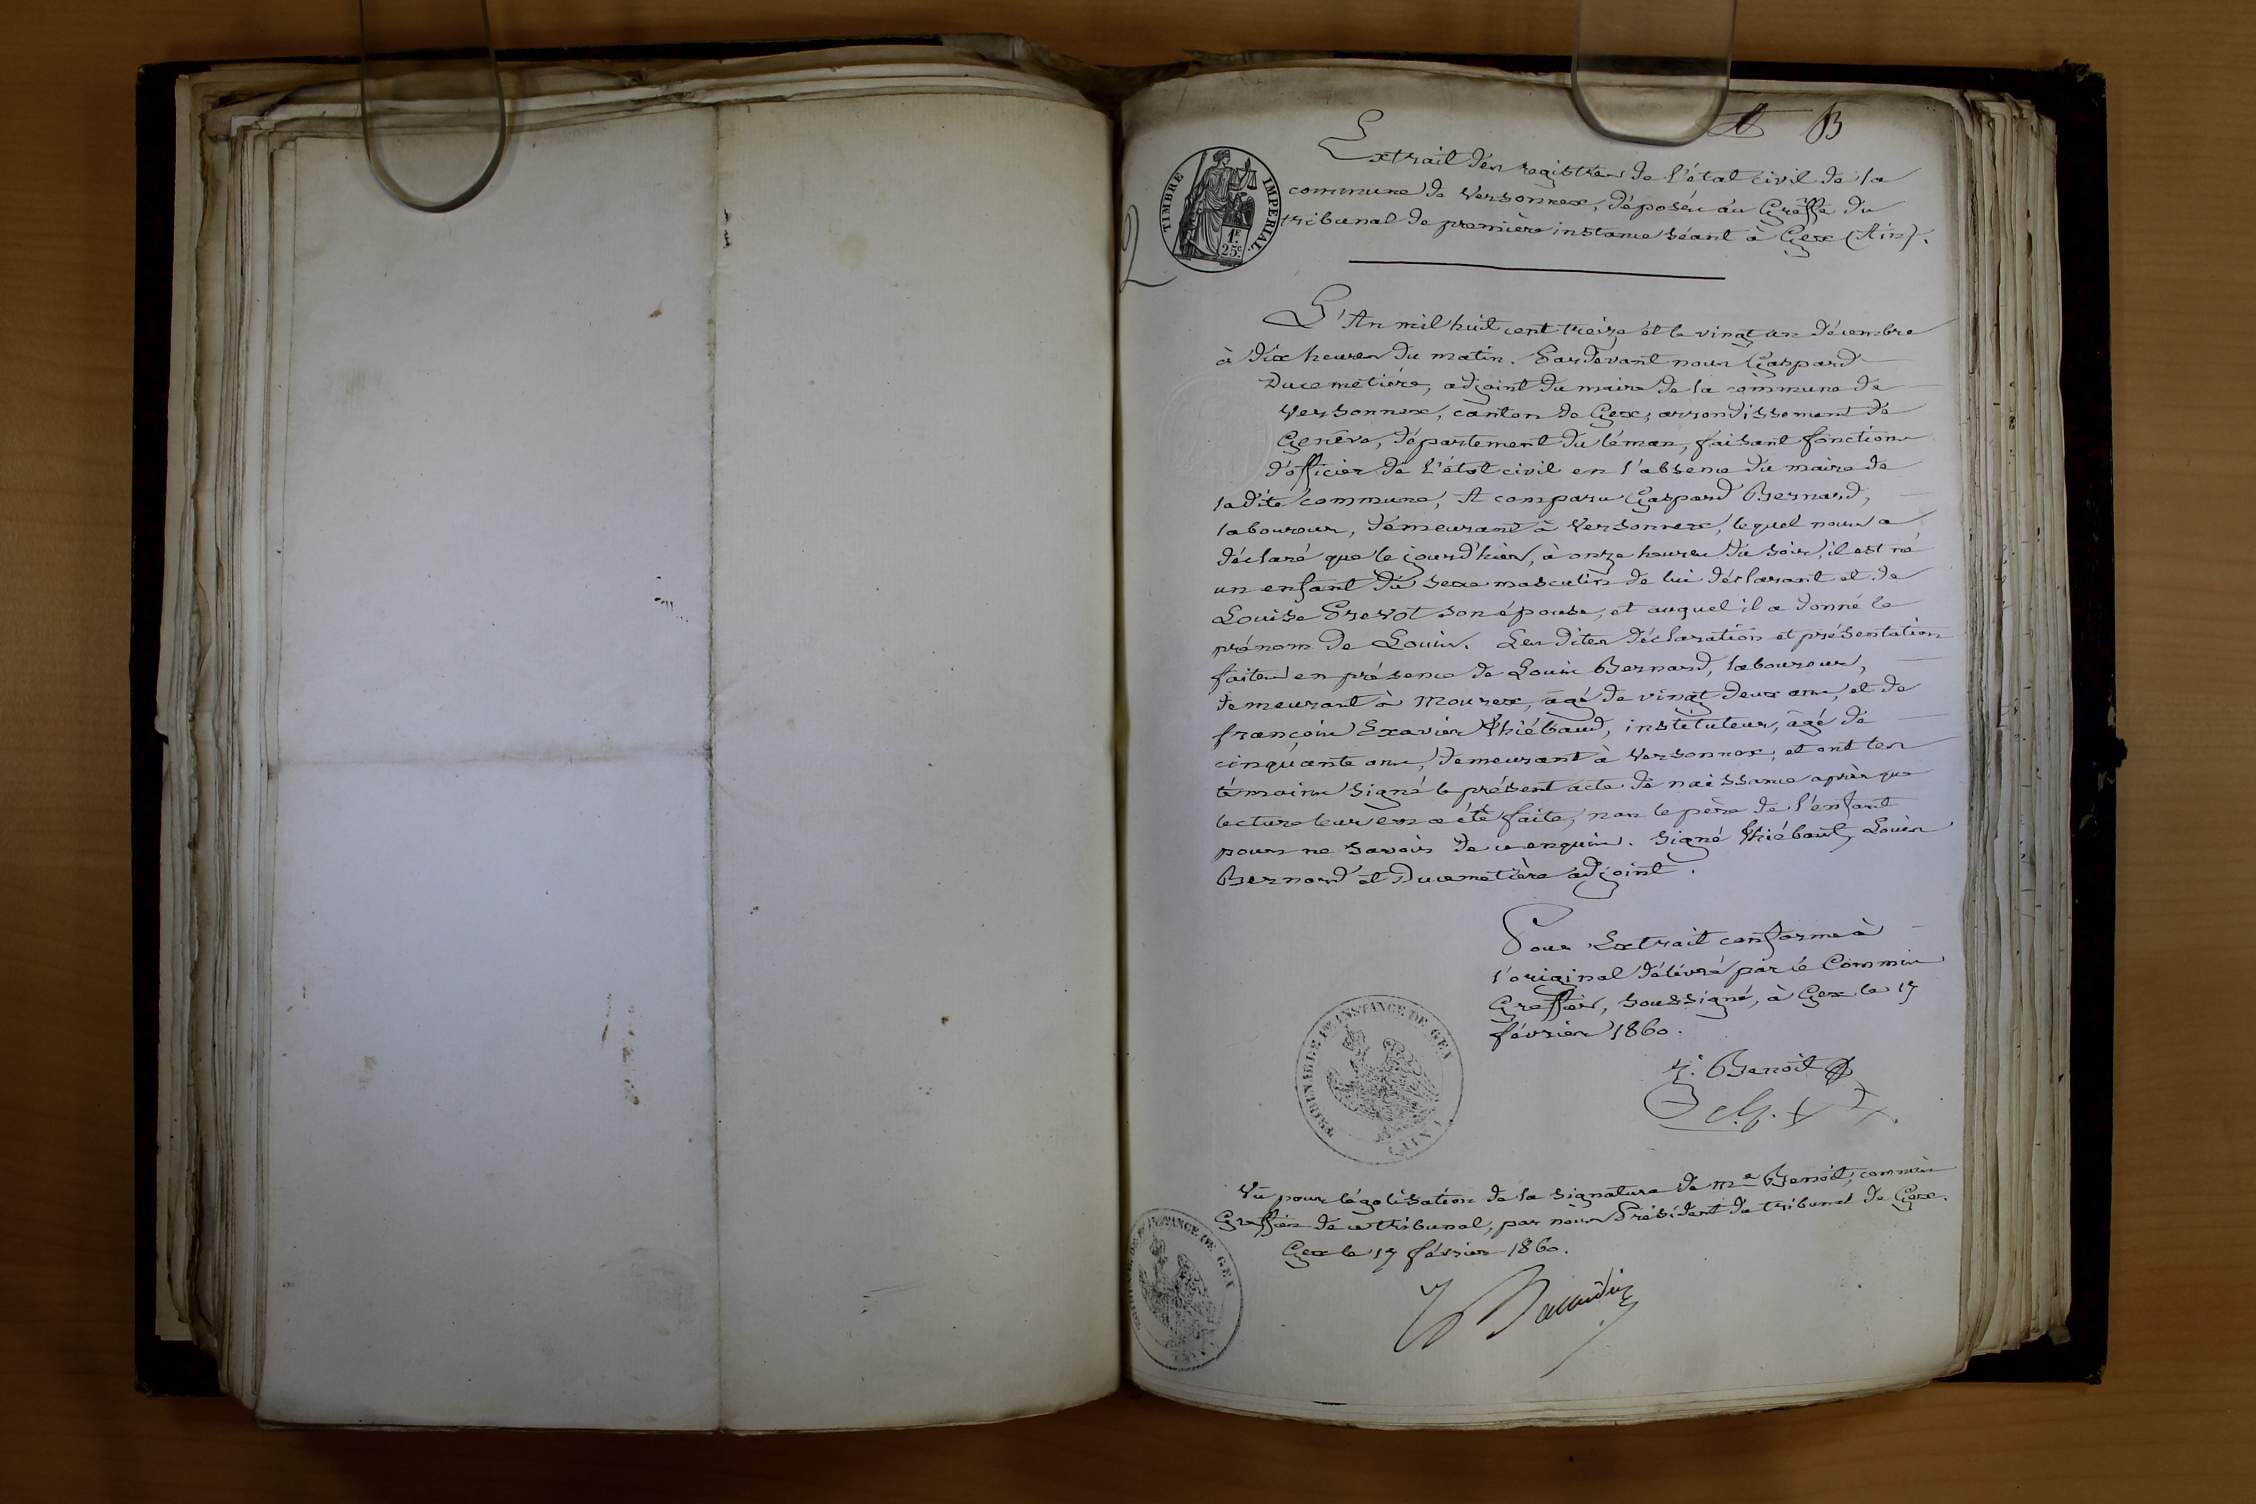 B
Extrait des registres de l'état civil de la
commune de Versonnex, déposés au Greffe du
tribunal de première instance séant à Gex (Ain).
TIMBRE IMPERIAL
1F.
25c.
2
L'An mil huit cent treize et le vingt un décembre
à dix heures du matin. Pardevant nous Gaspard
Ducemetière, adjoint du maire de la commune de
Versonnex, canton de Gex, arrondissement de
Genève, département du léman, faisant fonctions
d'officier de l'état civil en l'absence du maire de
la dite commune, A comparu Gaspard Bernard,
laboureur, demeurant à Versonnex, lequel nous a
déclaré que le jourd'hier, à onze heures du soir, il est né
un enfant du sexe masculin de lui déclarant et de
Louise Prevot son épouse, et auquel il a donné le
prénom de Louis. Les dites déclaration et présentation
faites en présence de Louis Bernard, laboureur,
demeurant à Mourex, âgé de vingt deux ans, et de
françois Exavier Thiébaud, instituteur, âgé de
cinquante ans, demeurant à Versonnex; et ont les
témoins signé le présent acte de naissance après que
lecture leur en a été faite, non le père de l'enfant
pour ne savoir de ce enquis. Signé Thiébaut, Louis
Bernard et Ducemetière adjoint.
Pour Extrait conforme à
l'original délivré par le Commis
Greffier, soussigné, à Gex le 17
février 1860.
Benoit
TRIBUNAL DE 1RE INSTANCE DE GEX
(AIN)
Vu pour légalisation de la signature de Me Benoit, commis
Greffier de ce tribunal, par nous Président du tribunal de Gex.
Gex le 17 février 1860.
INSTANCE DE GEX